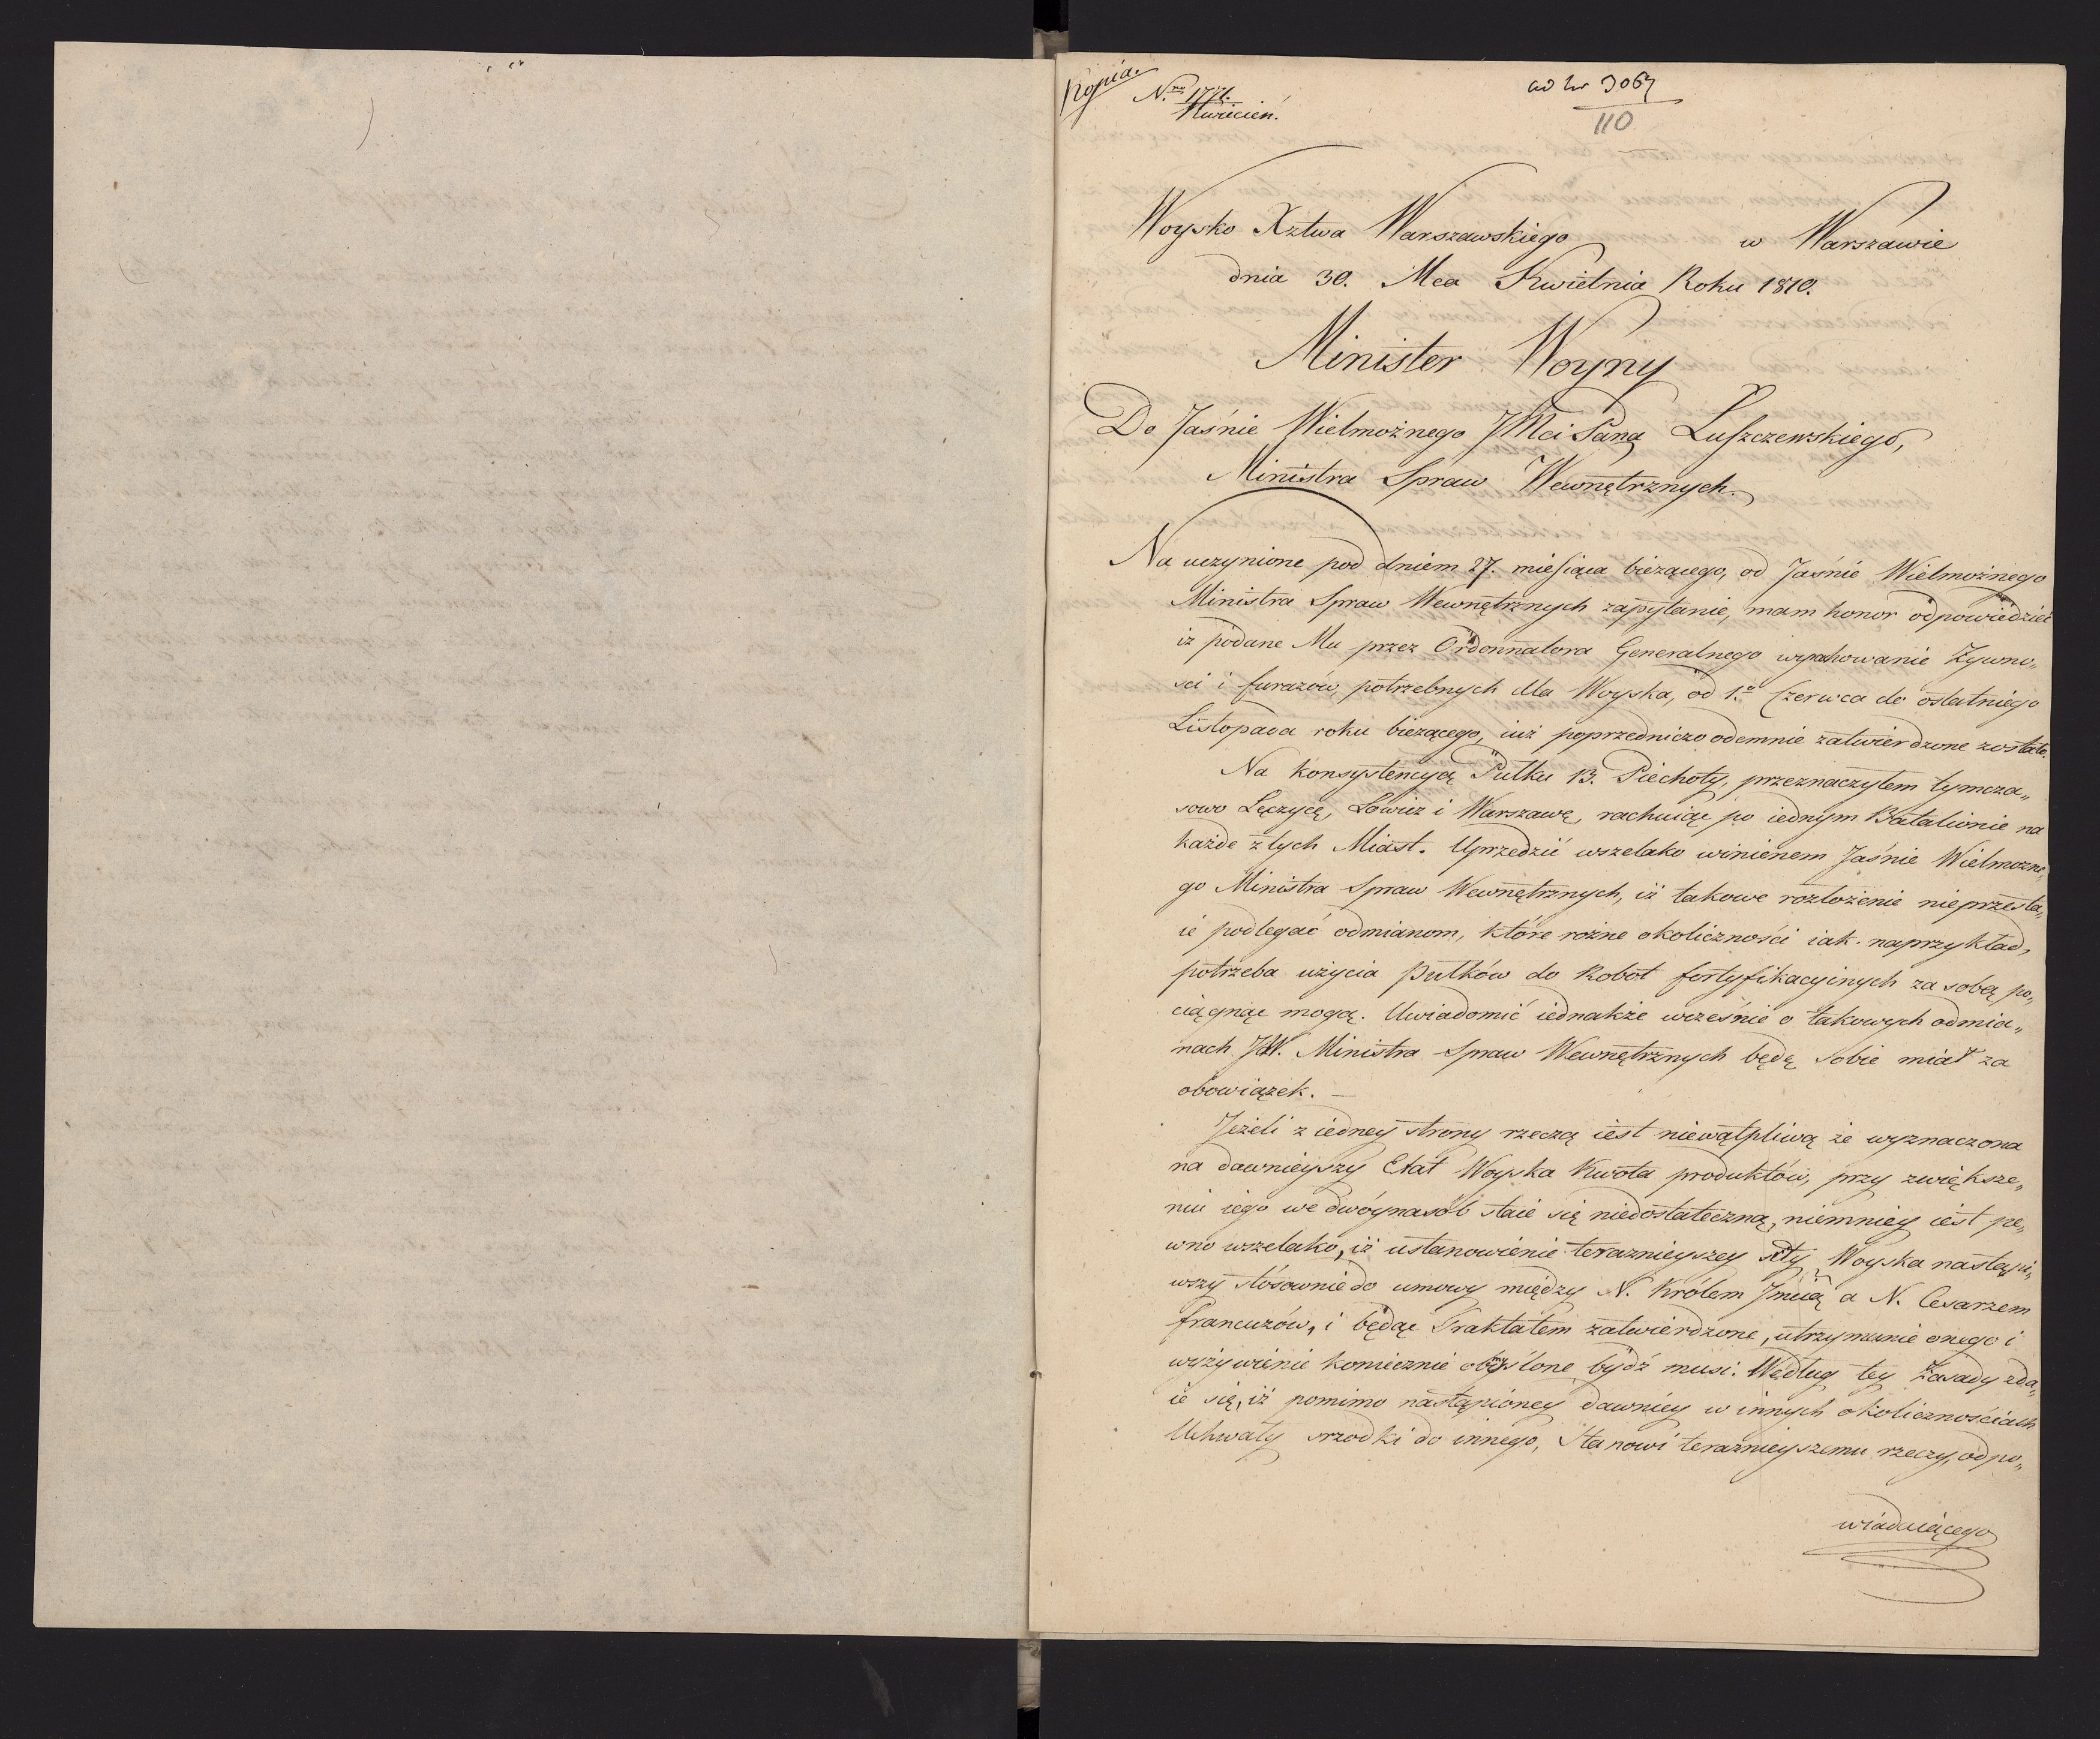 Kopia.
N.ro 1771.
Kwiecień.
ad Nr 3067
110
Woysko Xztwa Warszawskiego w Warszawie
dnia 30. Mca Kwietnia Roku 1810.
Minister Woyny
Do Jaśnie Wielmożnego JMci Pana Łuszczewskiego,
Ministra Spraw Wewnętrznych.
Na uczynione pod dniem 27. miesiąca bieżącego, od Jaśnie Wielmożnego
Ministra Spraw Wewnętrznych zapytanie, mam honor odpowiedzieć
iż podane Mu przez Ordonnatora Generalnego wyrachowanie Żywno„
ści i furażów, potrzebnych dla Woyska, od 1.o Czerwca do ostatniego
Listopada roku bieżącego, iuż poprzedniczo odemnie zatwierdzone zostało.
Na konsystencyą Pułku 13. Piechoty, przeznaczyłem tymcza„
sowo Łęczycę, Łowicz i Warszawę, rachuiąc po iednym Batalionie na
każde z tych Miast. Uprzedzić wszelako winienem Jaśnie Wielmożne„
go Ministra Spraw Wewnętrznych, iż takowe rozłożenie nieprzesta„
ie podlegać odmianom, które rożne okoliczności iak naprzykład,
potrzeba użycia Pułków do Robot fortyfikacyinych za sobą po„
ciągnąć mogą. Uwiadomić iednakże wcześnie o takowych odmia„
nach JW. Ministra Spraw Wewnętrznych będę sobie miał za
obowiązek. —
Jeżeli z iedney strony rzeczą iest niewątpliwą że wyznaczona
na dawnieyszy Etat Woyska Kwota produktów, przy zwiększe„
niu iego we dwóynasób staie się niedostateczną, niemniey iest pe„
wno wszelako, iż ustanowienie teraznieyszey siły Woyska nastąpi„
wszy stósownie do umowy między N. Królem Jmcią a N. Cesarzem
francuzów, i będąc Traktatem zatwierdzone, utrzymanie onego i
wyżywienie koniecznie obmyślone bydź musi. Według tey Zasady zda„
ie się, iż pomimo nastąpioney dawniey w innych okolicznościach
Uchwały srzodki do innego, Stanowi teraznieyszemu rzeczy, odpo„
wiadaiącego